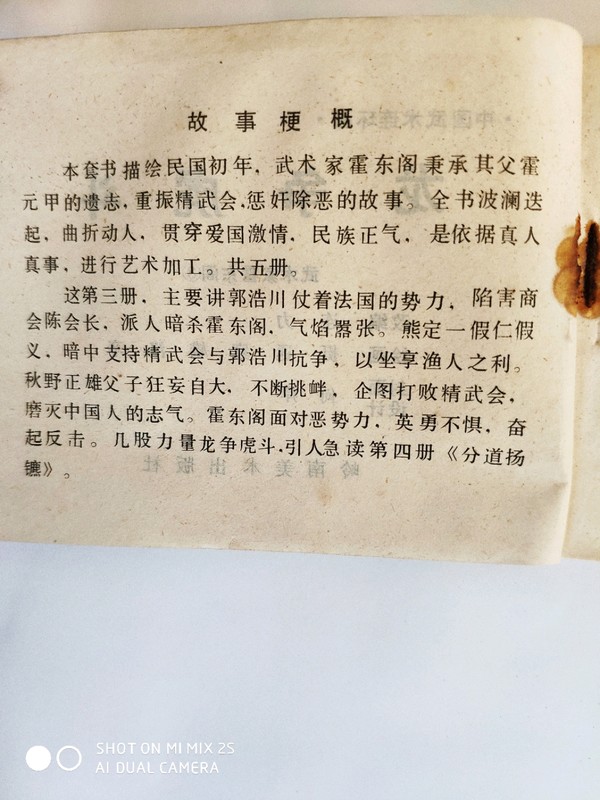 故事梗概
本套书描绘民国初年，武术家霍东阁秉承其父霍
元甲的遗志，重振精武会，惩奸除恶的故事。全书波澜迭
起，曲折动人，贯穿爱国激情，民族正气，是依据真人
真事，进行艺术加工。共五册。
这第三册，主要讲郭浩川仗着法国的势力，陷害商
会陈会长，派人暗杀霍东阁，气焰嚣张。熊定一假仁假
义，暗中支持精武会与郭浩川抗争，以坐享渔人之利。
秋野正雄父子狂妄自大，不断挑衅，企图打败精武会，
磨灭中国人的志气。霍东阁面对恶势力，英勇不惧，奋
起反击。几股力量龙争虎斗，引人急读第四册《分道扬
镳》。
岭南美术出版社
SHOT ON MI MIX 2S
AI DUAL CAMERA